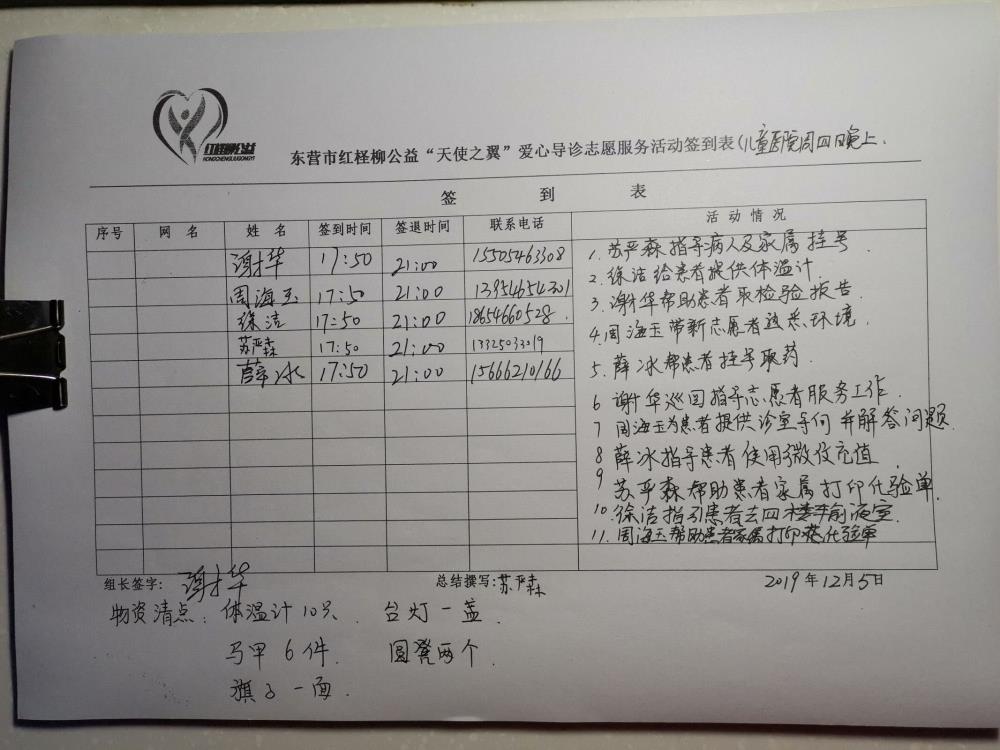 红柽柳公益
HONGCHENGLIUGONGYI
东营市红柽柳公益“天使之翼”爱心导诊志愿服务活动签到表(儿童医院周四晚上.
签 到 表
序号 网 名 姓 名 签到时间 签退时间 联系电话 活 动 情 况
谢华 17:50 21:00 15505463308
周海玉 17:50 21:00 13954654301
徐洁 17:50 21:00 18654660528.
苏严森 17:50 21:00 1332503019
薛冰 17:50 21:00 15666210166
1. 苏严森指导病人及家属挂号.
2. 徐洁给患者提供体温计.
3. 谢华帮助患者取检验报告.
4. 周海玉带新志愿者熟悉环境.
5. 薛冰帮患者挂号取药.
6 谢华巡回指导志愿者服务工作.
7 周海玉为患者提供诊室导向并解答问题.
8 薛冰指导患者使用微信充值.
9 苏严森帮助患者家属打印化验单.
10. 徐洁指引患者去四楼输液室.
11. 周海玉帮助患者家属打印化验单
组长签字: 谢华 总结撰写: 苏严森 2019年12月5日
物资清点: 体温计10只. 台灯一盏.
马甲6件. 圆凳两个.
旗子一面.